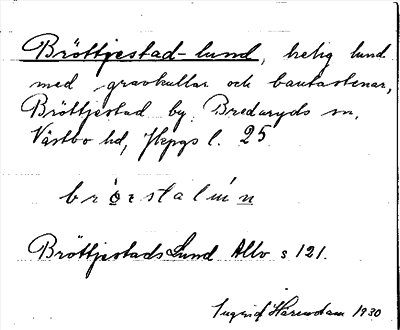 Bröttjestad-lund, helig lund
med gravkullar och bautastenar,
Bröttjestad by, Bredaryds sn,
Västbo hd, Jkpgs l. 25
Bröttjestads Lund Allv s 121.
Ingrid Härendam 1930